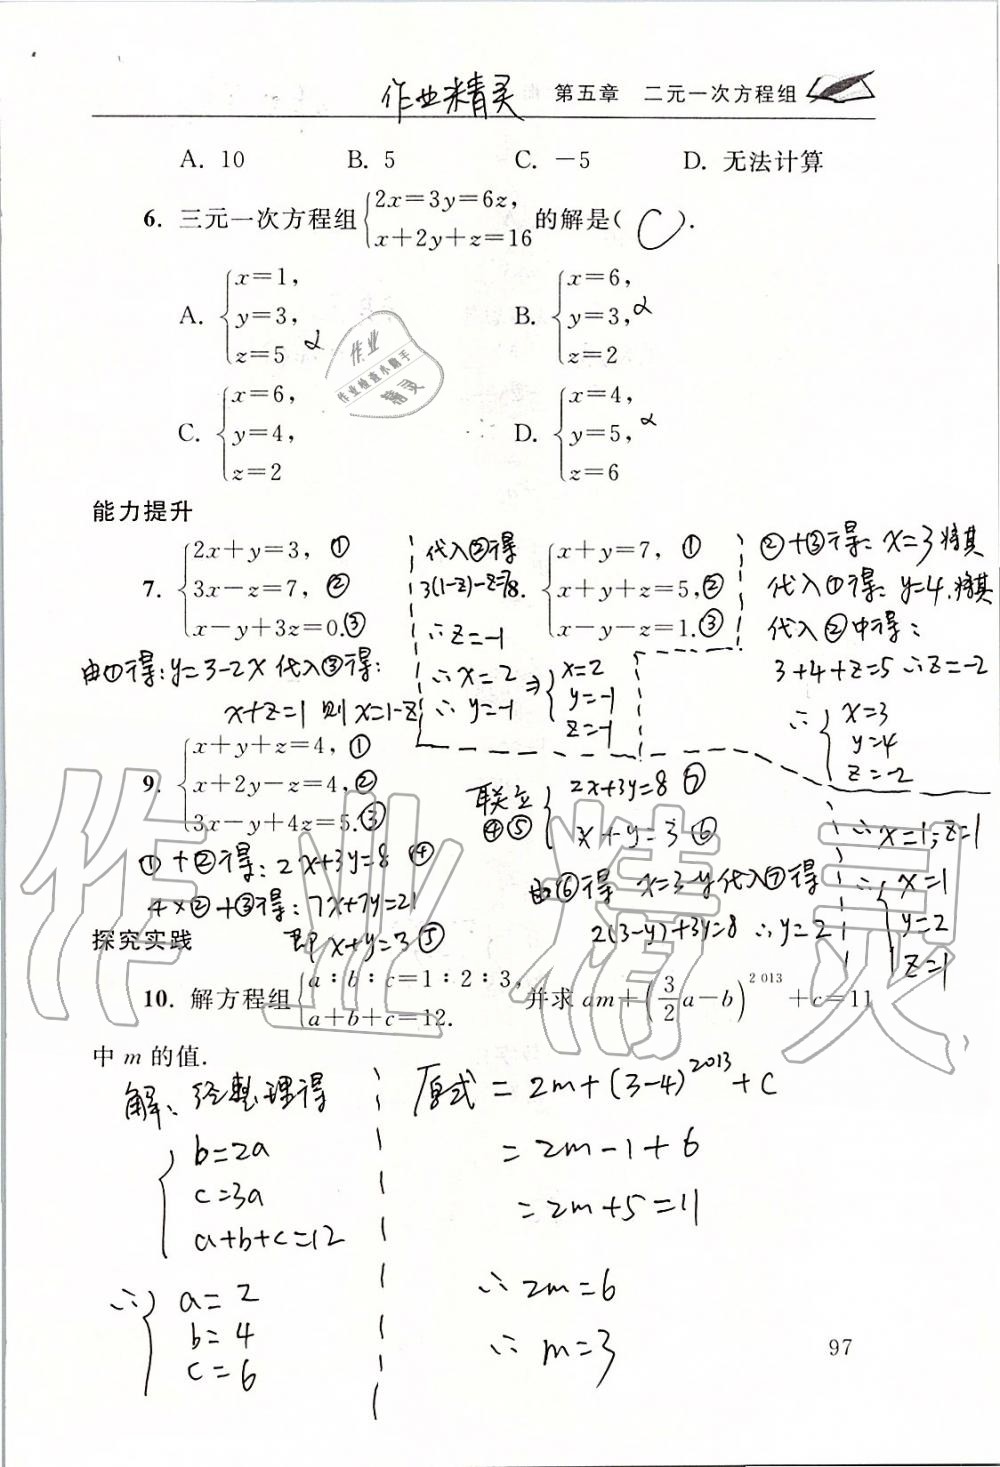 作业精灵 第五章 二元一次方程组
A. 10 B. 5 C. －5 D. 无法计算
6. 三元一次方程组{2x＝3y＝6z, x＋2y＋z＝16 的解是( C ).
A. {x＝1, y＝3, z＝5
B. {x＝6, y＝3, z＝2
C. {x＝6, y＝4, z＝2
D. {x＝4, y＝5, z＝6
作业
作业检查小助手
精灵
能力提升
7. {2x＋y＝3, ① 3x－z＝7, ② x－y＋3z＝0. ③
由①得:y=3-2x 代入③得:
x+z=1 则x=1-z
代入②得
3(1-z)-z=7
∴z=-1
∴x=2
∴y=-1
⇒{x=2 y=-1 z=-1
8. {x＋y＝7, ① x＋y＋z＝5, ② x－y－z＝1. ③
②+③得: x=3 将其
代入①得: y=4. 将其
代入②中得:
3+4+z=5 ∴z=-2
∴{x=3 y=4 z=-2
9. {x＋y＋z＝4, ① x＋2y－z＝4, ② 3x－y＋4z＝5. ③
①+②得: 2x+3y=8 ④
4×②+③得: 7x+7y=21
即x+y=3 ⑤
联立④⑤{2x+3y=8 ⑦ x+y=3 ⑥
由⑥得 x=3-y代入⑦得
2(3-y)+3y=8 ∴y=2
∴x=1, z=1
∴{x=1 y=2 z=1
探究实践
10. 解方程组{a∶b∶c＝1∶2∶3, a＋b＋c＝12. 并求 am＋(3/2 a－b)^2013＋c＝11
中 m 的值.
解: 经整理得
{b=2a
c=3a
a+b+c=12
∴{a=2
b=4
c=6
原式=2m+(3-4)^2013+c
=2m-1+6
=2m+5=11
∴2m=6
∴m=3
97
作业精灵